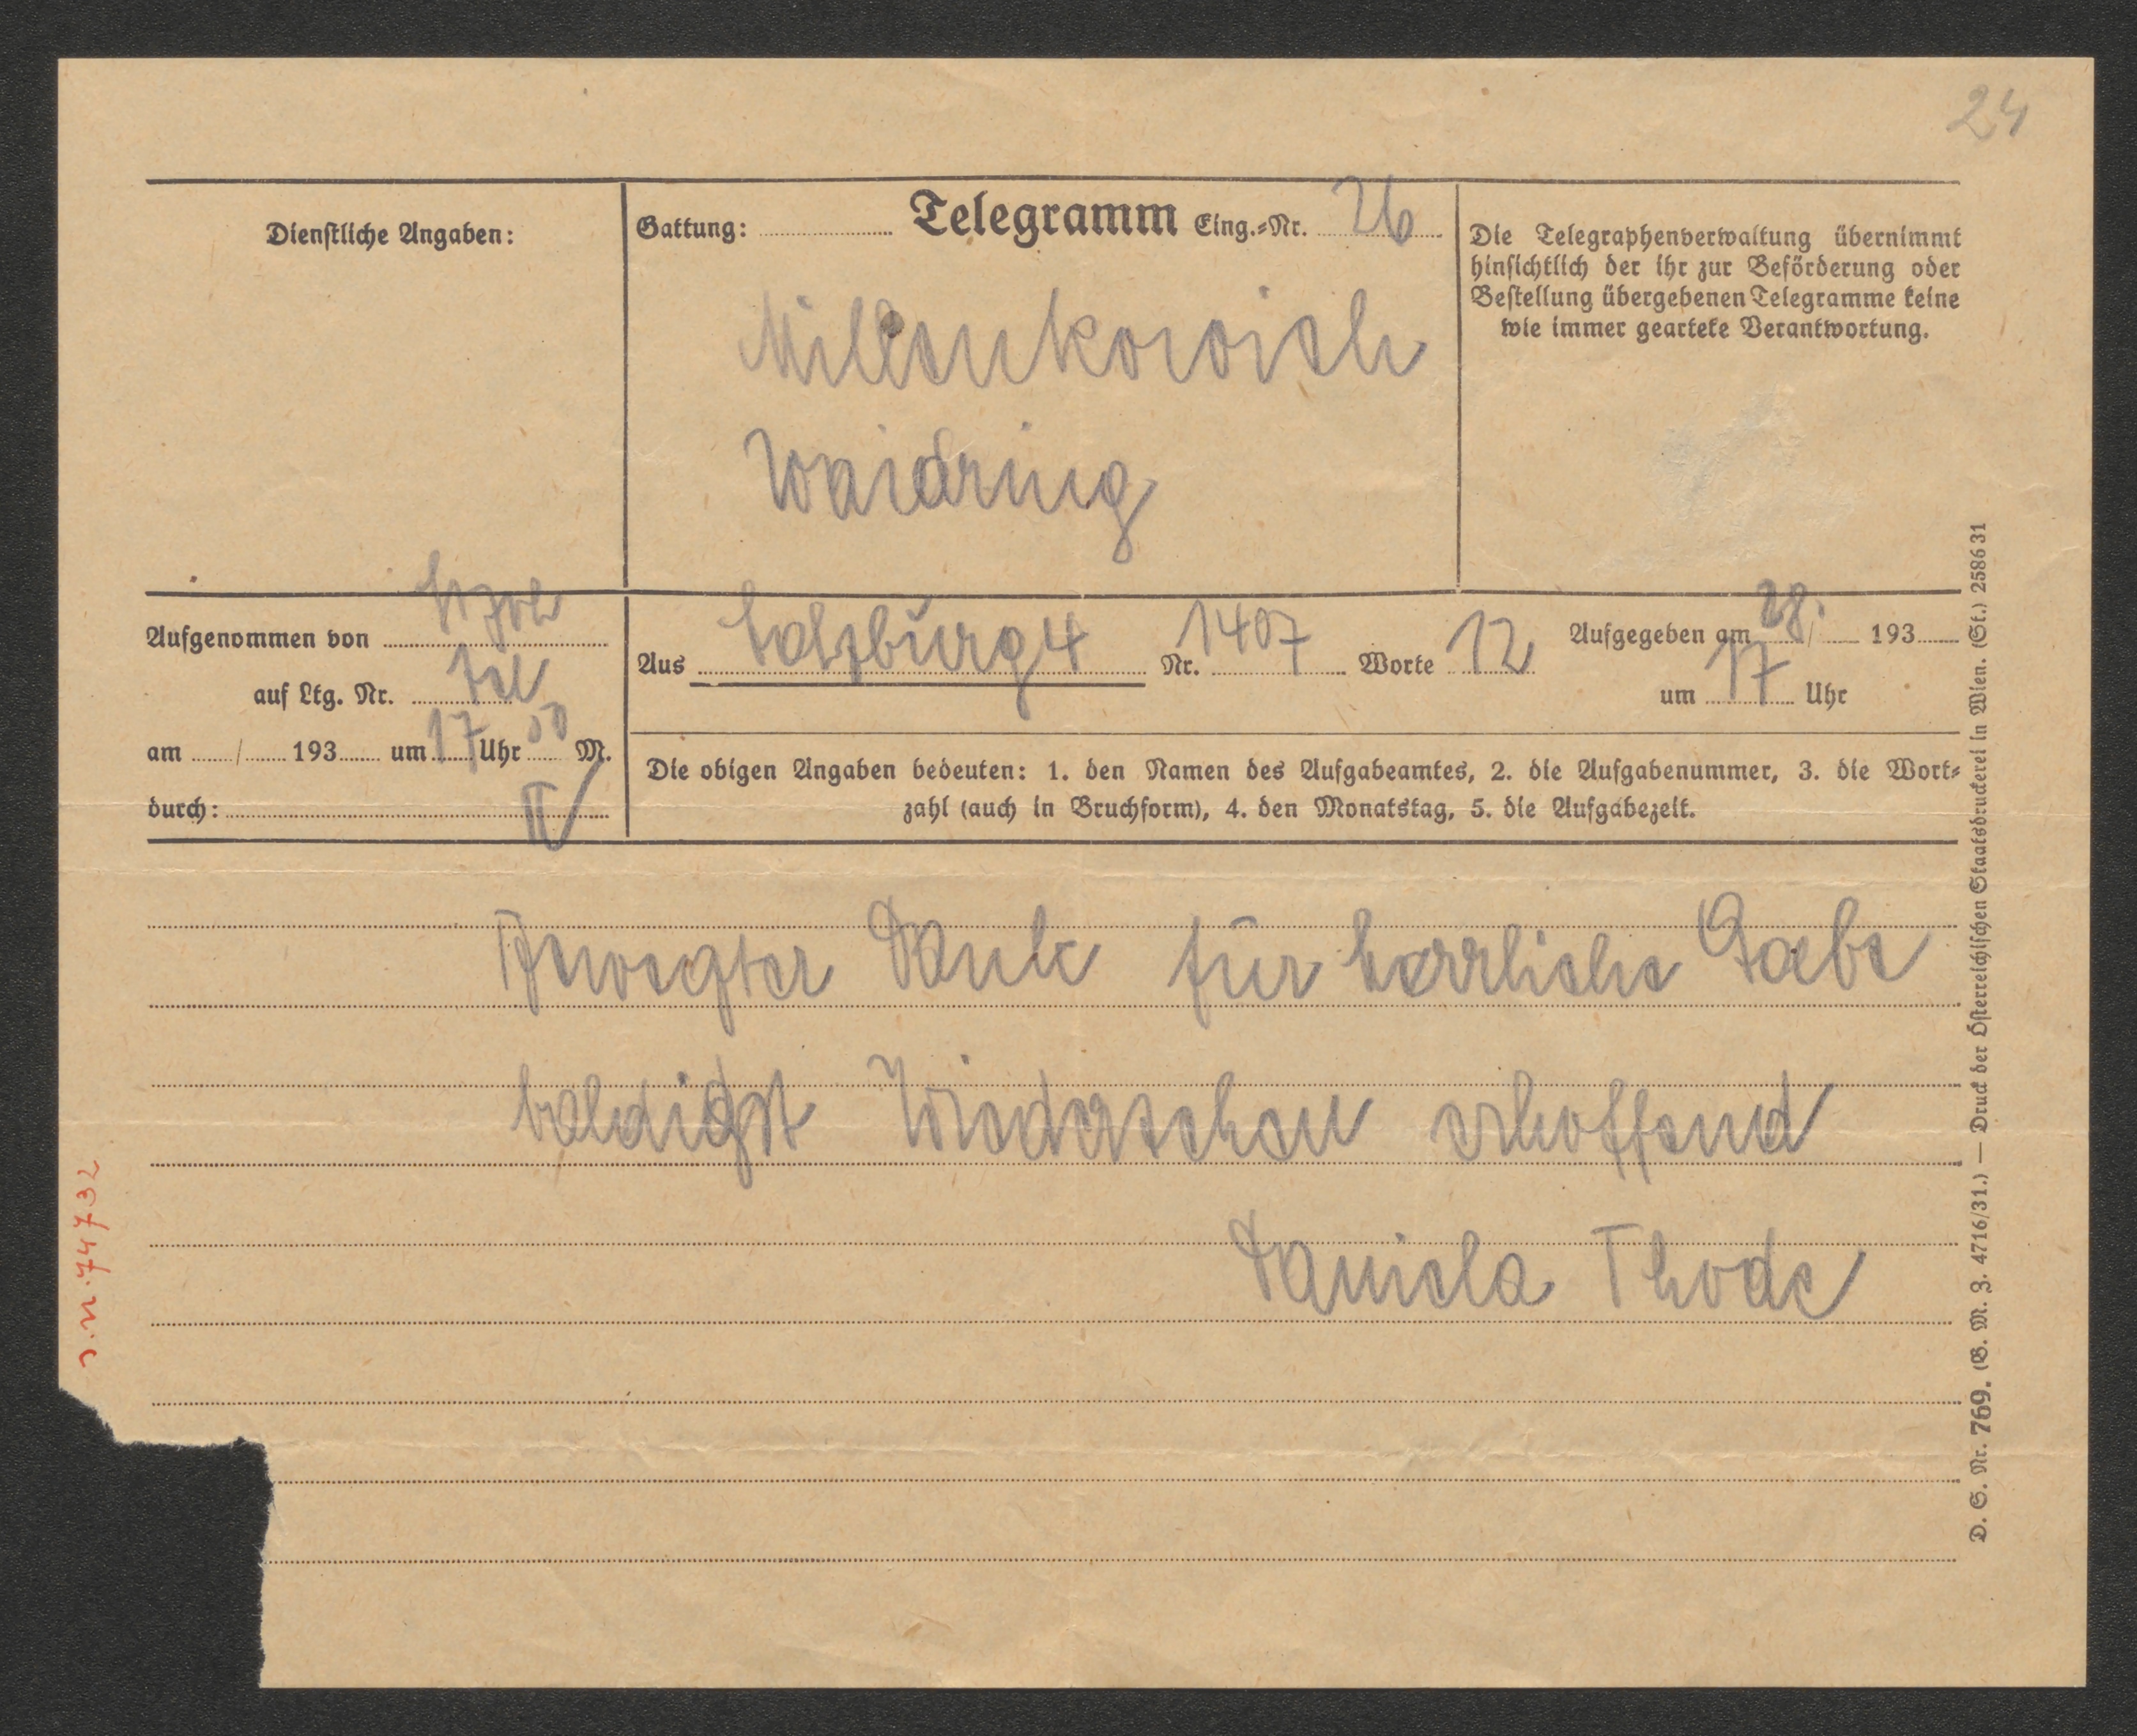 24
Dienstliche Angaben:
Gattung: Telegramm Eing.-Nr. 26
Die Telegraphenverwaltung übernimmt
hinsichtlich der ihr zur Beförderung oder
Bestellung übergebenen Telegramme keine
wie immer geartete Verantwortung.
Millenkowich
Waidring
Aufgenommen von
auf Ltg. Nr.
am / 193 um 17 Uhr 50 M.
durch:
Aus Salzburg 4 Nr. 1407 Worte 12 Aufgegeben am 28. / 193
um 17 Uhr
Die obigen Angaben bedeuten: 1. den Namen des Aufgabeamtes, 2. die Aufgabenummer, 3. die Wort-
zahl (auch in Bruchform), 4. den Monatstag, 5. die Aufgabezeit.
Bewegter Dank für herrliche Gabe
baldigst Wiederschau erhoffend
Daniela Thode
J.N. 74732
D. S. Nr. 769. (G. M. Z. 4716/31.) — Druck der Österreichischen Staatsdruckerei in Wien. (St.) 2586 31